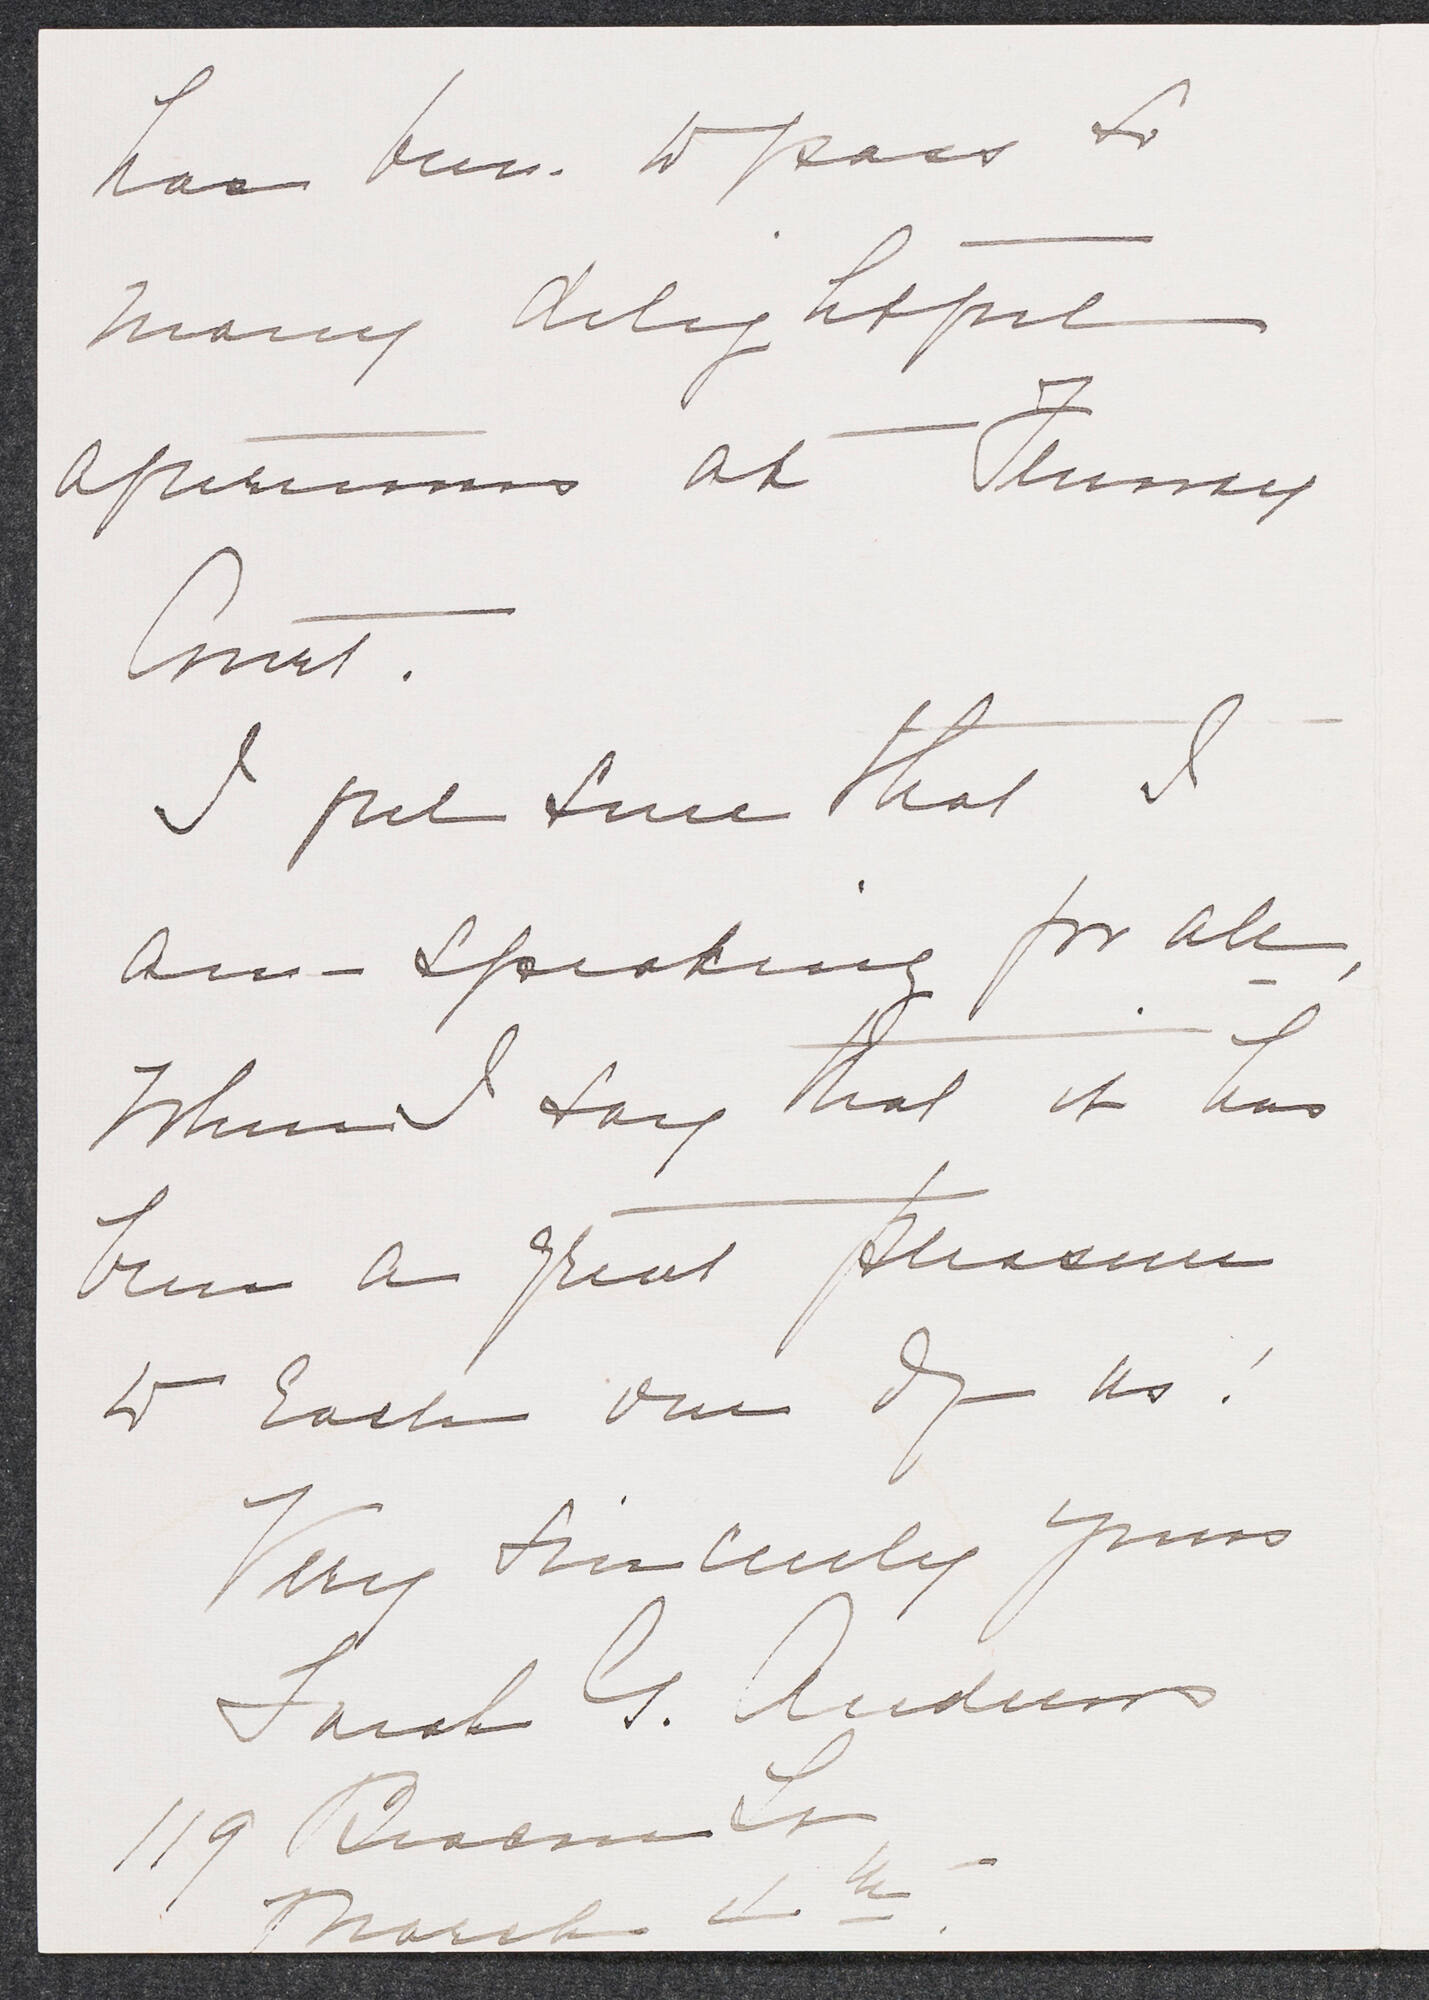 has been to pass so
many delightful
afternoons at Fenway
Court.
I feel sure that I
am speaking for all,
when I say that it has
been a great pleasure
to each one of us!
Very sincerely yours
Sarah G. Andrews
119 Beacon St
March 4th.